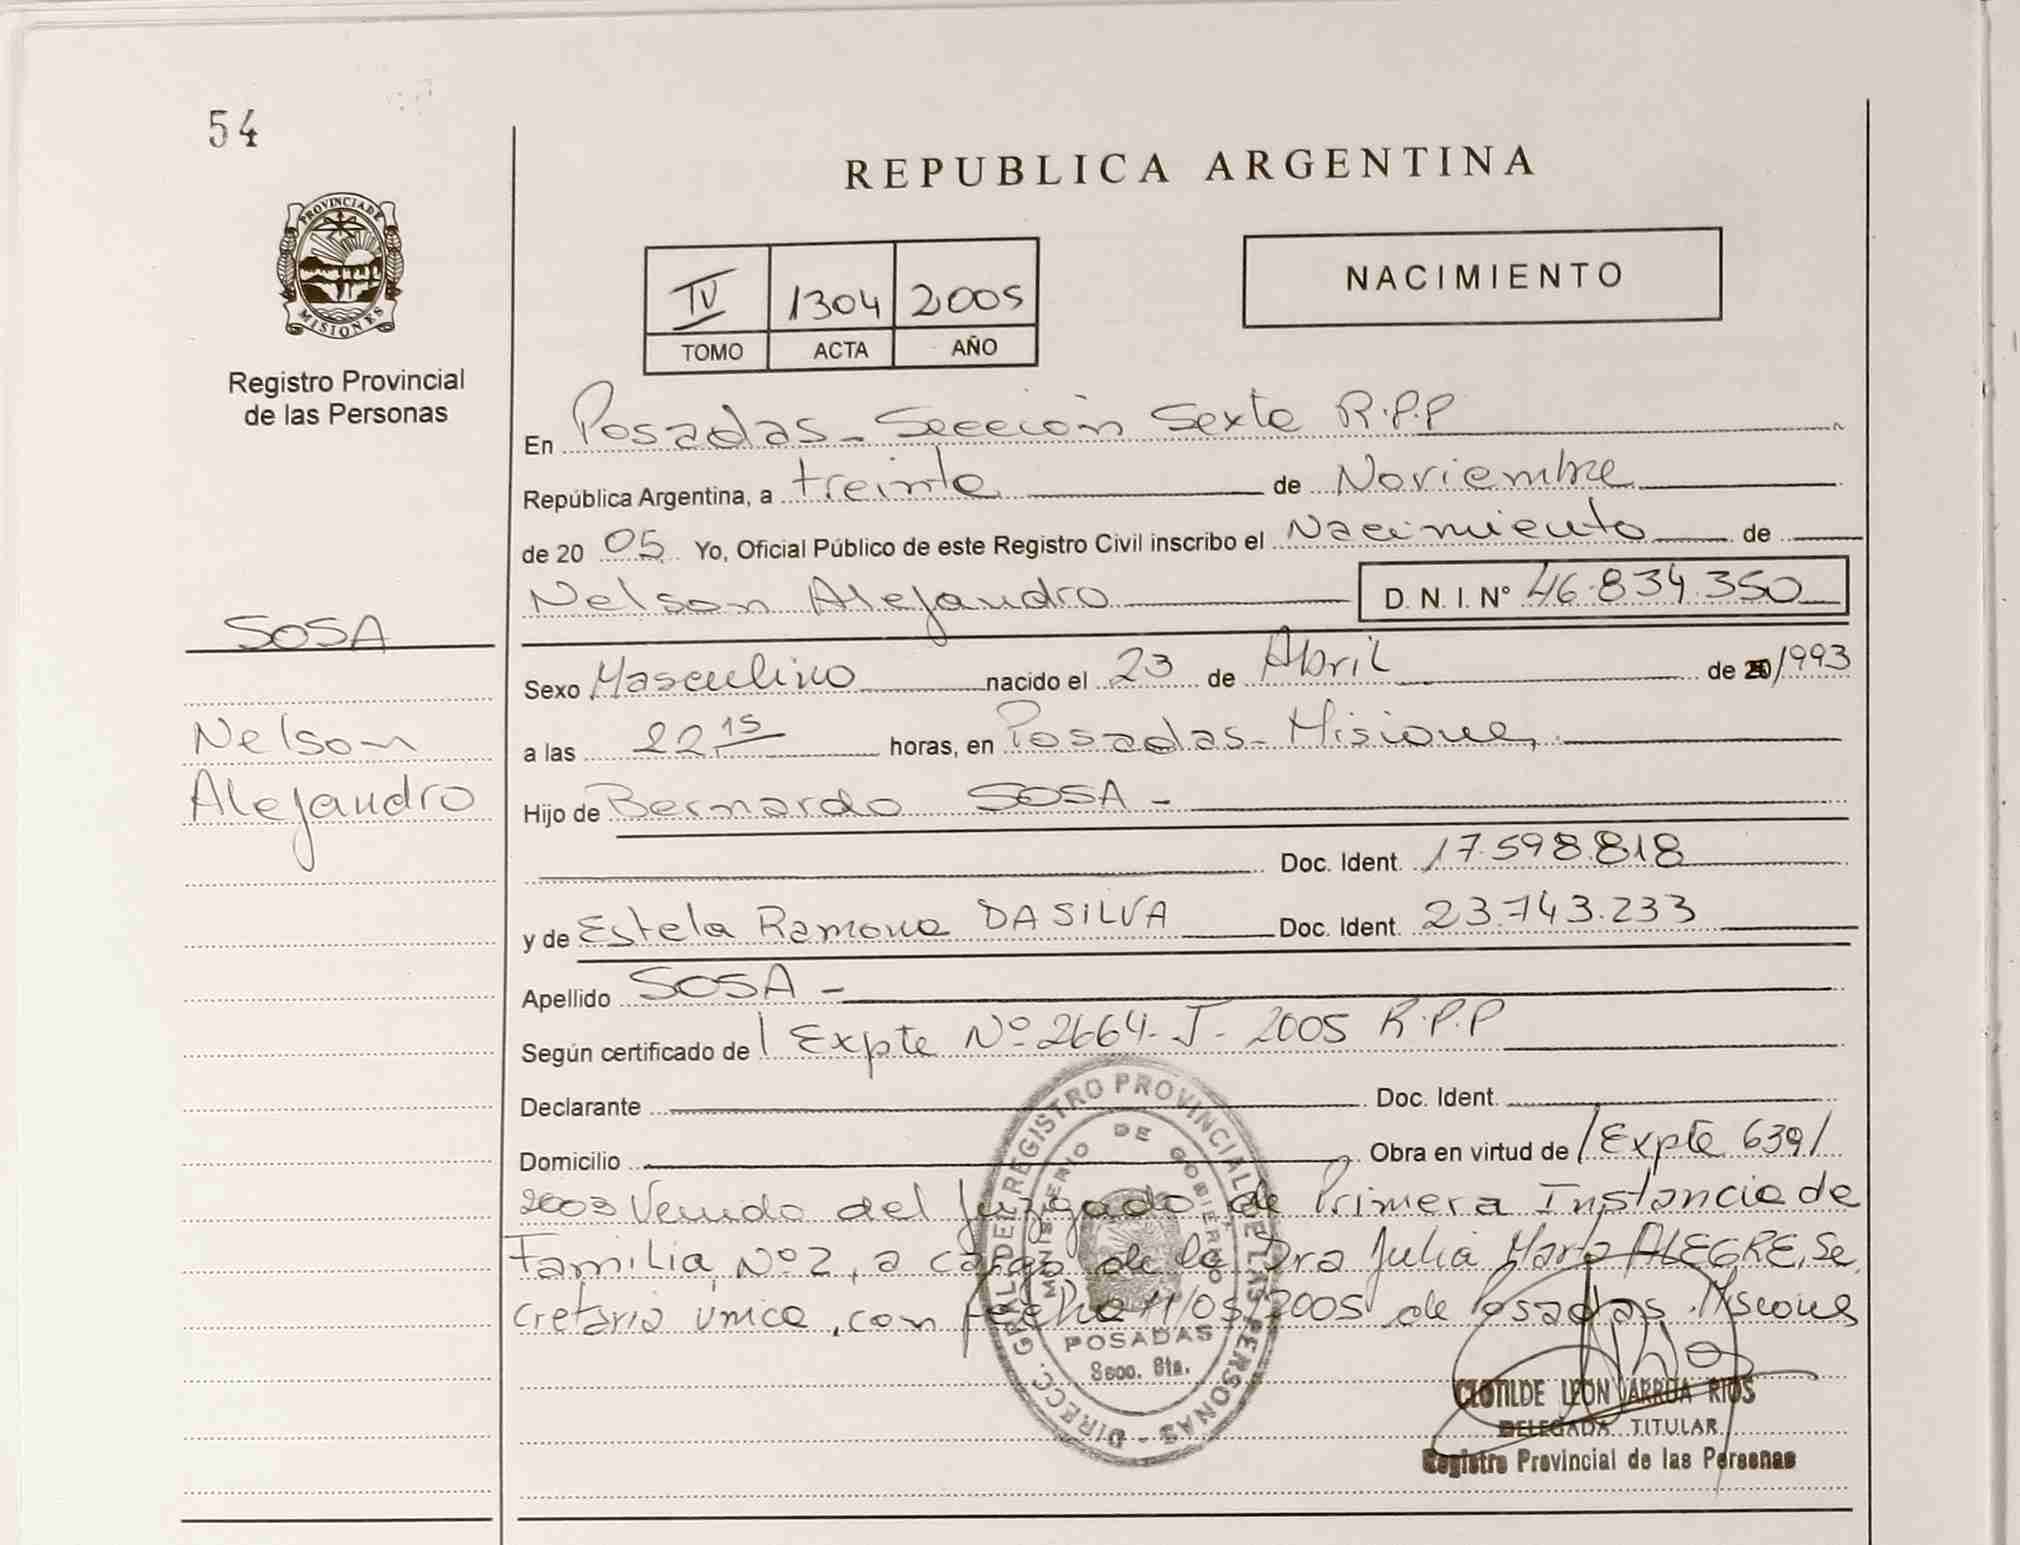 54
REPUBLICA ARGENTINA
PROVINCIA DE
MISIONES
Registro Provincial
de las Personas
IV 1304 2005
TOMO ACTA AÑO
NACIMIENTO
En Posadas - Sección Sexta R.P.P
República Argentina, a treinta de Noviembre
de 20 05 Yo, Oficial Público de este Registro Civil inscribo el Nacimiento de
Nelson Alejandro D. N. I. N° 46.834.350
SOSA
Nelson
Alejandro
Sexo Masculino nacido el 23 de Abril de 20/1993
a las 22 15 horas, en Posadas - Misiones
Hijo de Bernardo SOSA -
Doc. Ident. 17.598.818
y de Estela Ramona DA SILVA Doc. Ident. 23.743.233
Apellido SOSA -
Según certificado de / Expte Nº 2664-J-2005 R.P.P
Declarante Doc. Ident.
Domicilio Obra en virtud de / Expte 639/
2003 Venido del Juzgado de Primera Instancia de
Familia Nº2, a cargo de la Dra Julia Marta ALEGRE, Se
cretaria única, con fecha 11/05/2005 de Posadas. Misiones
DIRECC. GRAL. DEL REGISTRO PROVINCIAL DE LAS PERSONAS -
MINISTERIO DE GOBIERNO
POSADAS
Secc. 6ta.
CLOTILDE LEON ARRUA RIOS
DELEGADA TITULAR
Registro Provincial de las Personas